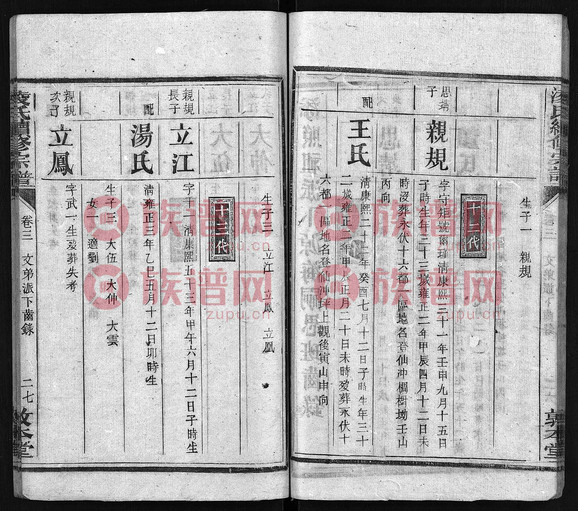 生子一 親規
十二代
思靖
子
親規
字守矩號爾
清康熙三十一年壬申九月十五日
子時生年三十三歲雍正二年甲辰四月十二日未
時歿葬永伏十六都八區地名登仙沖楓樹坳壬山
丙向
配
王氏
清康熙三十二年癸酉七月十二日子時生年三十
二歲雍正二年甲辰正月二十日未時歿葬永伏十
六都八區地名仙沖坪上觀後寅山申向
生子三 立江 立鳳
十三代
親規
長子
立江
字千一清康熙五十三年甲午六月十二日子時生
配
湯氏
清雍正三年乙巳五月十二日卯時生
生子三 大伍 大仲 大雲
女一 適劉
親規
次子
立鳳
字武一生歿葬失考
凌氏續修宗譜
卷三 文弟派下齒錄
二七
敦本堂
族谱网
zupu.cn